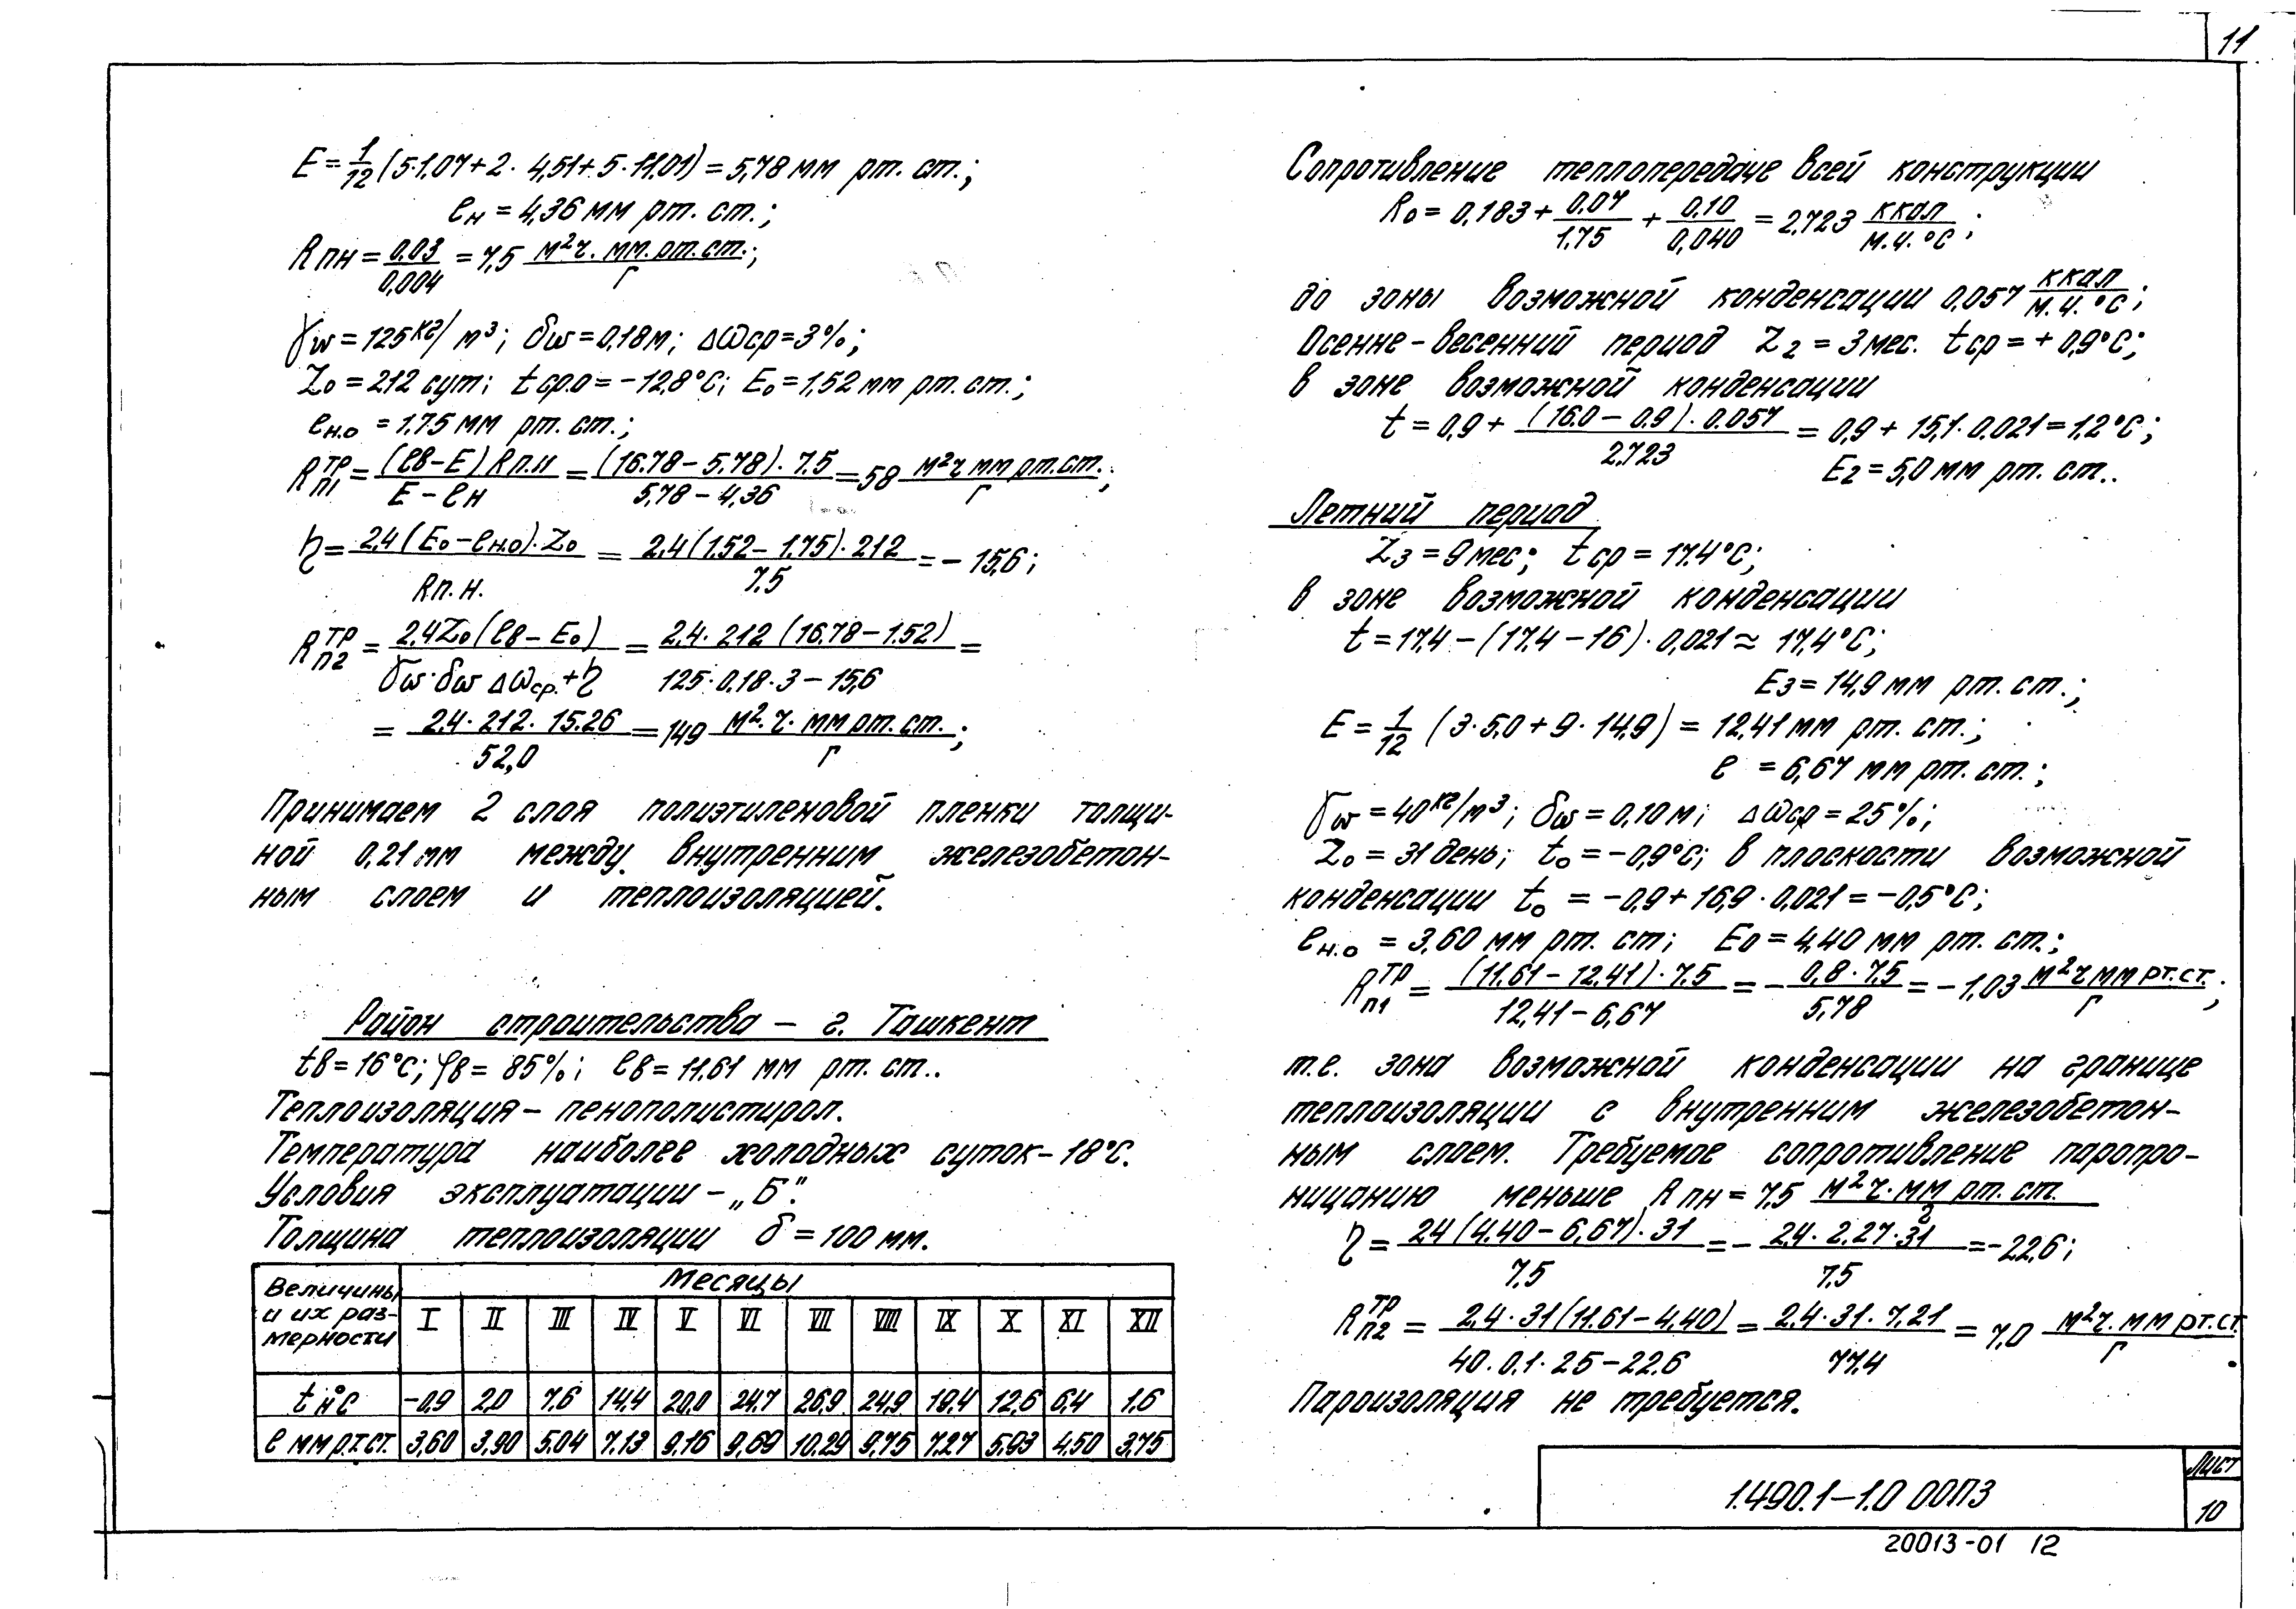 11
E = 1/12 (5·1,07 + 2 · 4,51 + 5 · 11,01) = 5,78 мм рт. ст.;
eн = 4,36 мм рт. ст.;
Rпн = 0,03/0,004 = 7,5 м²ч. мм. рт. ст./г;
γω = 125 кг/м³; δω = 0,18 м; Δωср = 3%;
Z₀ = 212 сут; tср.о = −12,8°С; E₀ = 1,52 мм рт. ст.;
eн.о = 1.75 мм рт. ст.;
Rп1ТР = (eв−E) Rп.н / E−eн = (16.78−5.78)·7.5 / 5.78−4,36 = 58 м²ч мм рт. ст./г;
η = 2,4 (E₀−eн.о)·Z₀ / Rп.н. = 2,4 (1.52−1.75)·212 / 7.5 = −15,6;
Rп2ТР = 2,4Z₀ (eв−E₀) / γω·δω Δωср.+η = 2,4·212 (16.78−1.52) / 125·0,18·3−15,6 =
= 2,4·212·15.26 / 52,0 = 149 м².ч. мм рт. ст./г;
Принимаем 2 слоя полиэтиленовой пленки толщи-
ной 0,21 мм между внутренним железобетон-
ным слоем и теплоизоляцией.
Район строительства – г. Ташкент
tв = 16°С; φв = 85%; eв = 11.61 мм рт. ст..
Теплоизоляция – пенополистирол.
Температура наиболее холодных суток −18°С.
Условия эксплуатации – „Б".
Толщина теплоизоляции δ = 100 мм.
Величины и их раз-мерности Месяцы
I II III IV V VI VII VIII IX X XI XII
tн°С −0,9 2,0 7.6 14,4 20,0 24,7 26,9 24,9 19,4 12,6 6,4 1.6
e мм рт.ст. 3,60 3,90 5,04 7,13 9,16 9,69 10,29 9,75 7,27 5,93 4,50 3,75
Сопротивление теплопередаче всей конструкции
R₀ = 0,183 + 0.07/1,75 + 0,10/0,040 = 2,723 ккал/м.ч.°С;
до зоны возможной конденсации 0,057 ккал/м.ч.°С;
Осенне – весенний период Z₂ = 3 мес. tср = + 0,9°С;
в зоне возможной конденсации
t = 0,9 + (16.0 − 0,9)·0.057 / 2.723 = 0,9 + 15,1·0,021 = 1,2°С;
E₂ = 5,0 мм рт. ст..
Летний период
Z₃ = 9 мес; tср = 17.4°С;
в зоне возможной конденсации
t = 17,4 − (17,4 − 16)·0,021 ≈ 17,4°С;
E₃ = 14,9 мм рт. ст.;
E = 1/12 (3·5,0 + 9·14,9) = 12,41 мм рт. ст.;
e = 6,67 мм рт. ст.;
γω = 40 кг/м³; δω = 0,10 м; Δωср = 25%;
Z₀ = 31 день; t₀ = −0,9°С; в плоскости возможной
конденсации t₀ = −0,9 + 16,9·0,021 = −0,5°С;
eн.о = 3,60 мм рт. ст; E₀ = 4,40 мм рт. ст.;
Rп1ТР = (11,61 − 12,41)·7.5 / 12,41 − 6,67 = − 0,8·7,5 / 5,78 = −1,03 м²ч мм рт. ст./г;
т.е. зона возможной конденсации на границе
теплоизоляции с внутренним железобетон-
ным слоем. Требуемое сопротивление паропро-
ницанию меньше Rпн = 7,5 м²ч. мм рт. ст./г
η = 2,4 (4.40 − 6,67)·31 / 7,5 = − 2,4·2,27·31 / 7,5 = −22,6;
Rп2ТР = 2,4·31 (11.61 − 4,40) / 40·0,1·25−22,6 = 2,4·31·7,21 / 77,4 = 7,0 м²ч. мм рт. ст./г.
Пароизоляция не требуется.
1.490.1–1.0 00ПЗ
Лист
10
20013-01 12